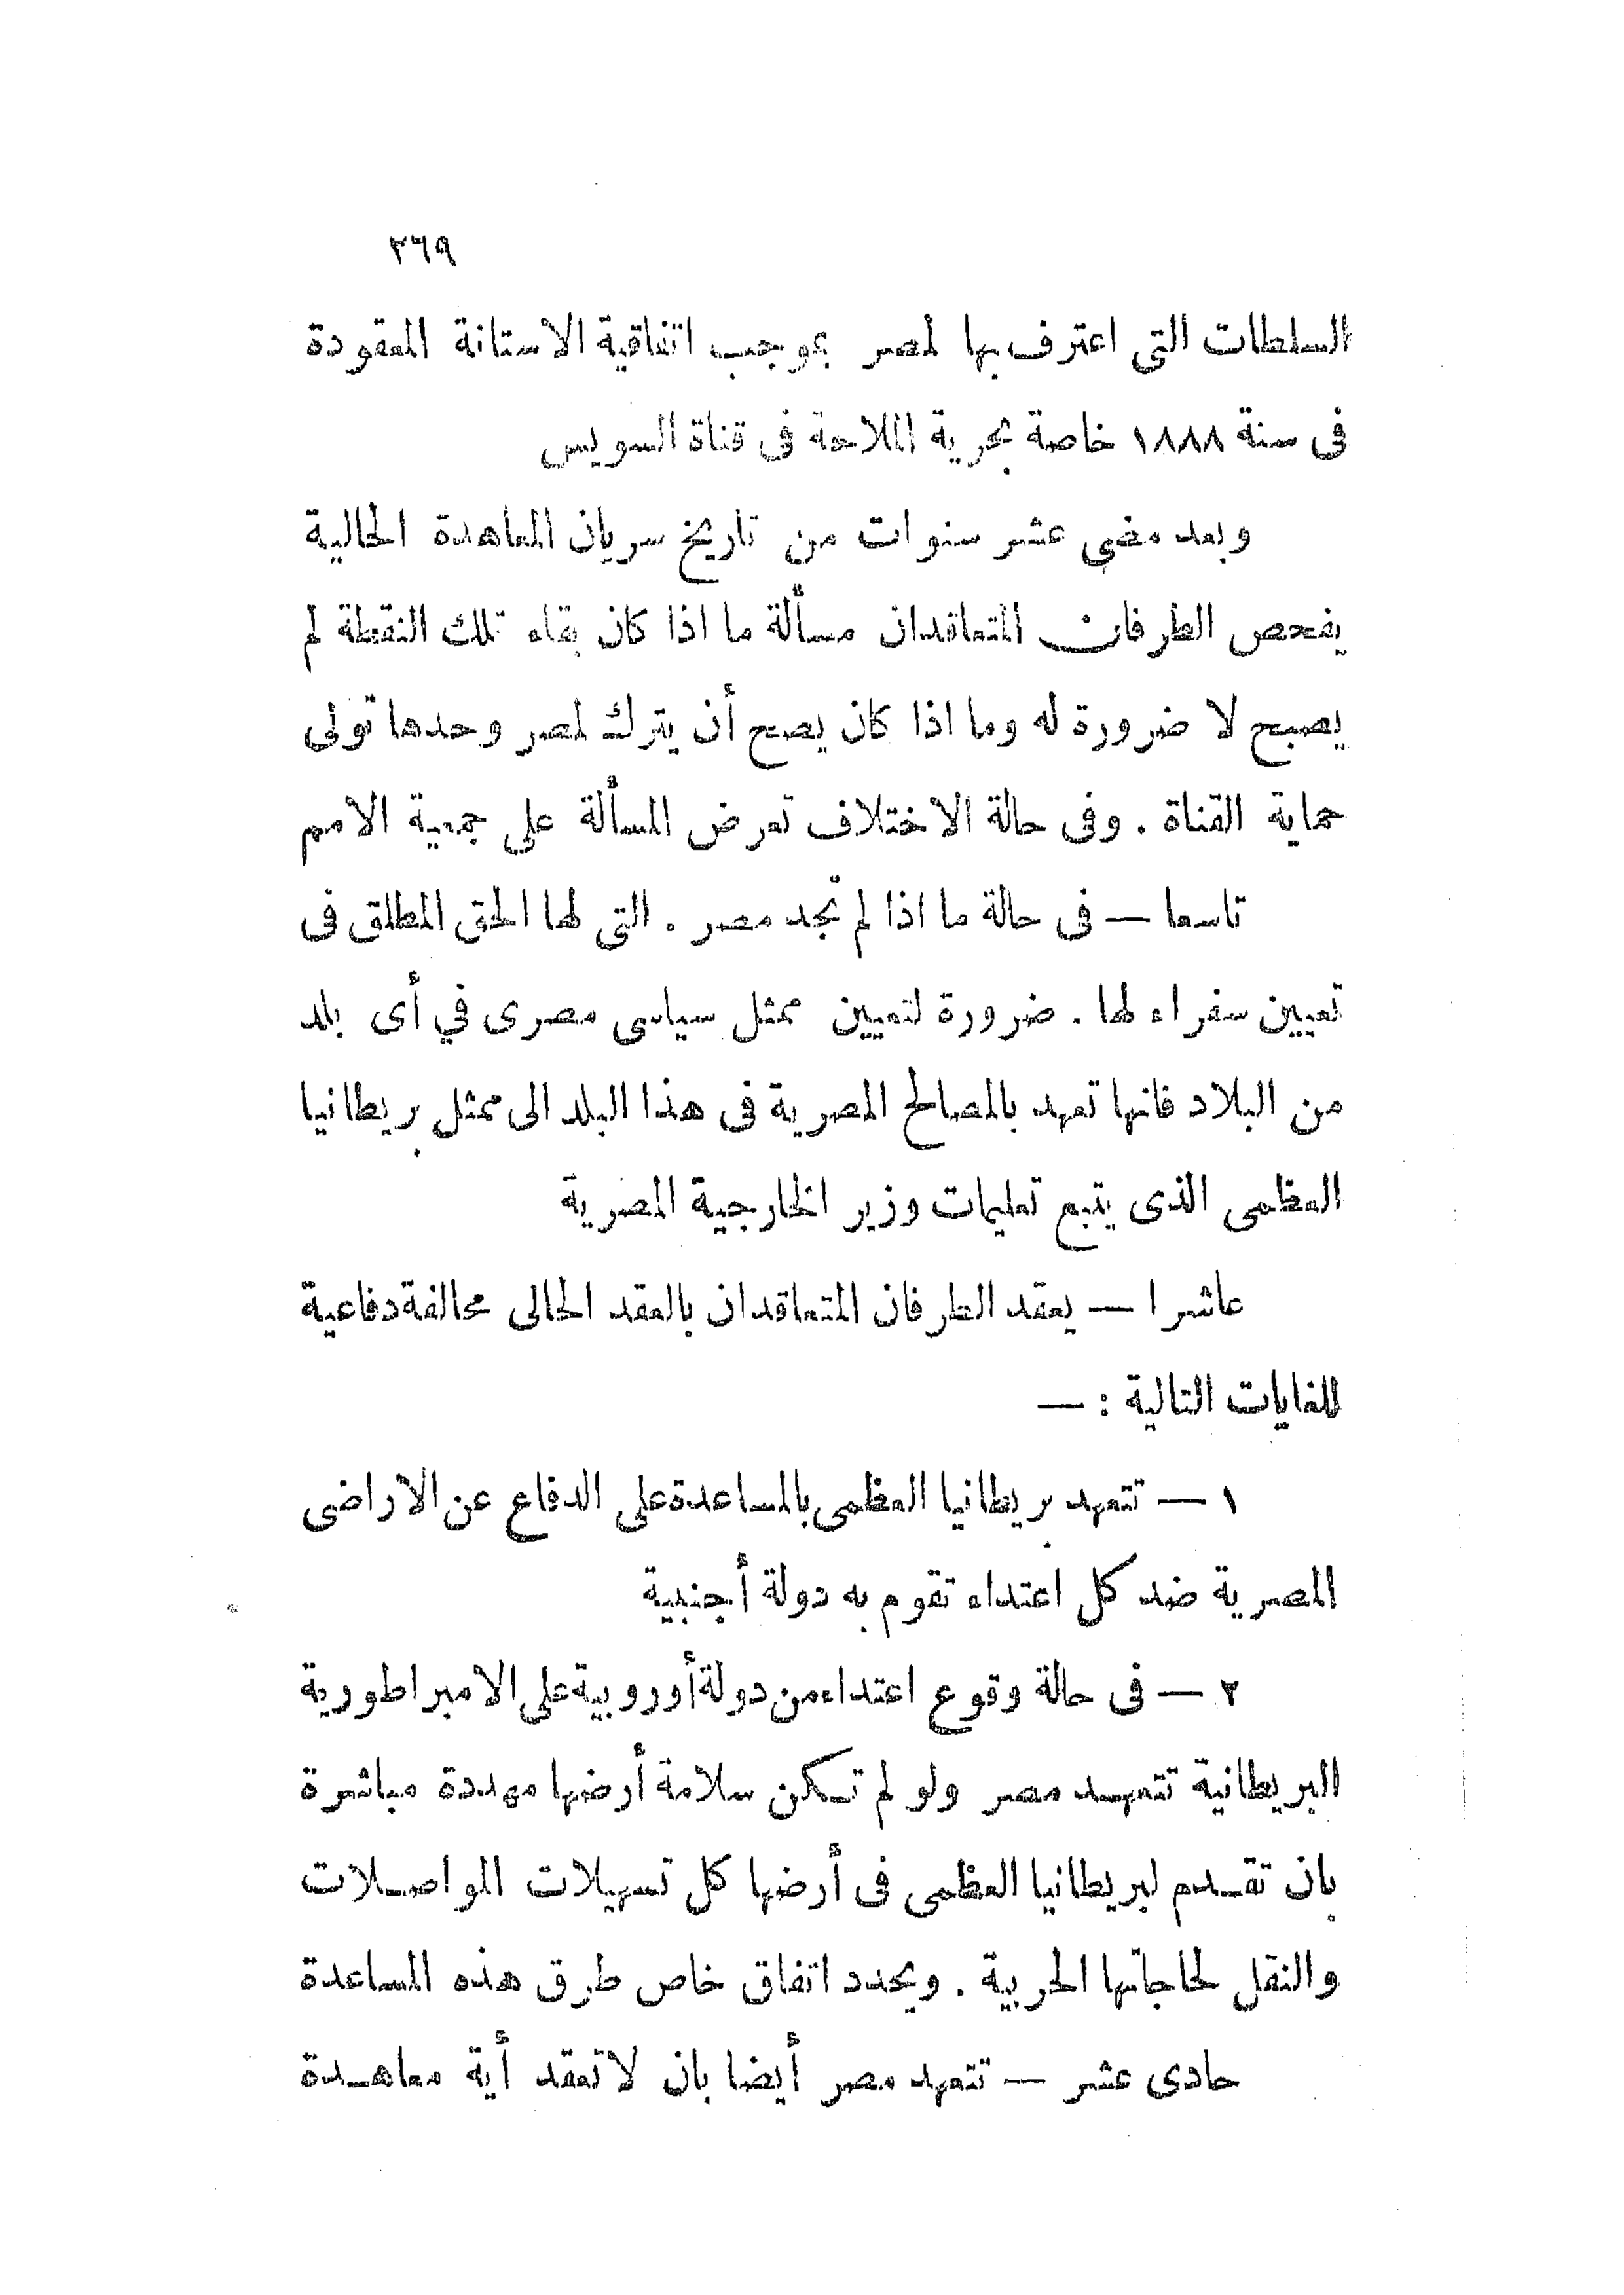 ٢٦٩
السلطات التى اعترف بها لمصر بموجب اتفاقية الاستانة المعقودة
فى سنة ١٨٨٨ خاصة بحرية الملاحة فى قناة السويس
وبعد مضى عشر سنوات من تاريخ سريان المعاهدة الحالية
يفحص الطرفان المتعاقدان مسألة ما اذا كان بقاء تلك النقطة لم
يصبح لا ضرورة له وما اذا كان يصح أن يترك لمصر وحدها تولى
حماية القناة . وفى حالة الاختلاف تعرض المسألة على جمعية الامم
تاسعا — فى حالة ما اذا لم تجد مصر . التى لها الحق المطلق فى
تعيين سفراء لها . ضرورة لتعيين ممثل سياسى مصرى في أى بلد
من البلاد فانها تعهد بالمصالح المصرية فى هذا البلد الى ممثل بريطانيا
العظمى الذى يتبع تعليمات وزير الخارجية المصرية
عاشرا — يعقد الطرفان المتعاقدان بالعقد الحالى محالفة دفاعية
للغايات التالية : —
١ — تتعهد بريطانيا العظمى بالمساعدة على الدفاع عن الاراضى
المصرية ضد كل اعتداء تقوم به دولة أجنبية
٢ — فى حالة وقوع اعتداء من دولة أوروبية على الامبراطورية
البريطانية تتعهد مصر ولو لم تكن سلامة أرضها مهددة مباشرة
بان تقدم لبريطانيا العظمى فى أرضها كل تسهيلات المواصلات
والنقل لحاجاتها الحربية . ويحدد اتفاق خاص طرق هذه المساعدة
حادى عشر — تتعهد مصر أيضا بان لا تعقد أية معاهدة